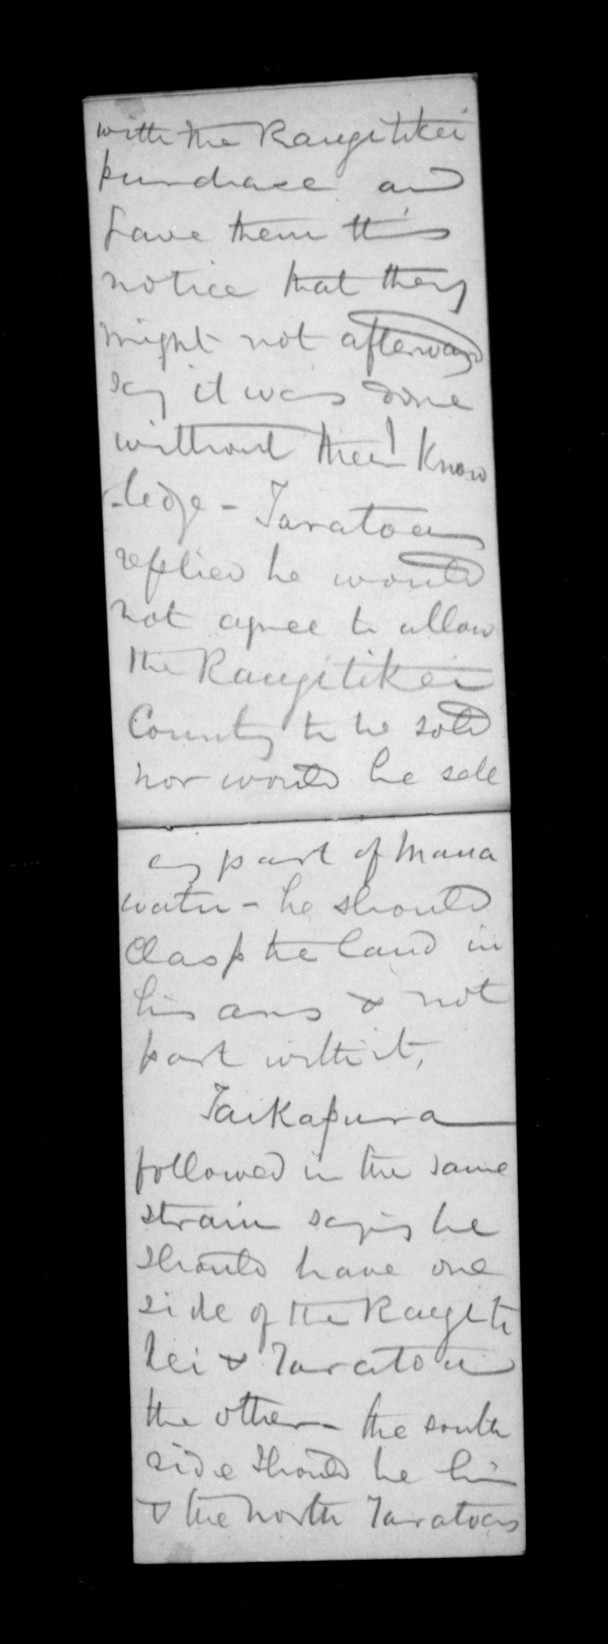 with the Rangitikei
purchase and
gave them this
notice that they
might not afterwards
say it was done
without their know
-ledge - Taratoa
replied he would
not agree to allow
the Rangitikei
Country to be sold
nor would he sell
any part of Mana
watu - he should
clasp the land in
his arms & not
part with it,
Taikapura
followed in the same
strain saying he
should have one
side of the Rangiti
kei & Taratoa
the other - the south
side should be his
& the north Taratoas